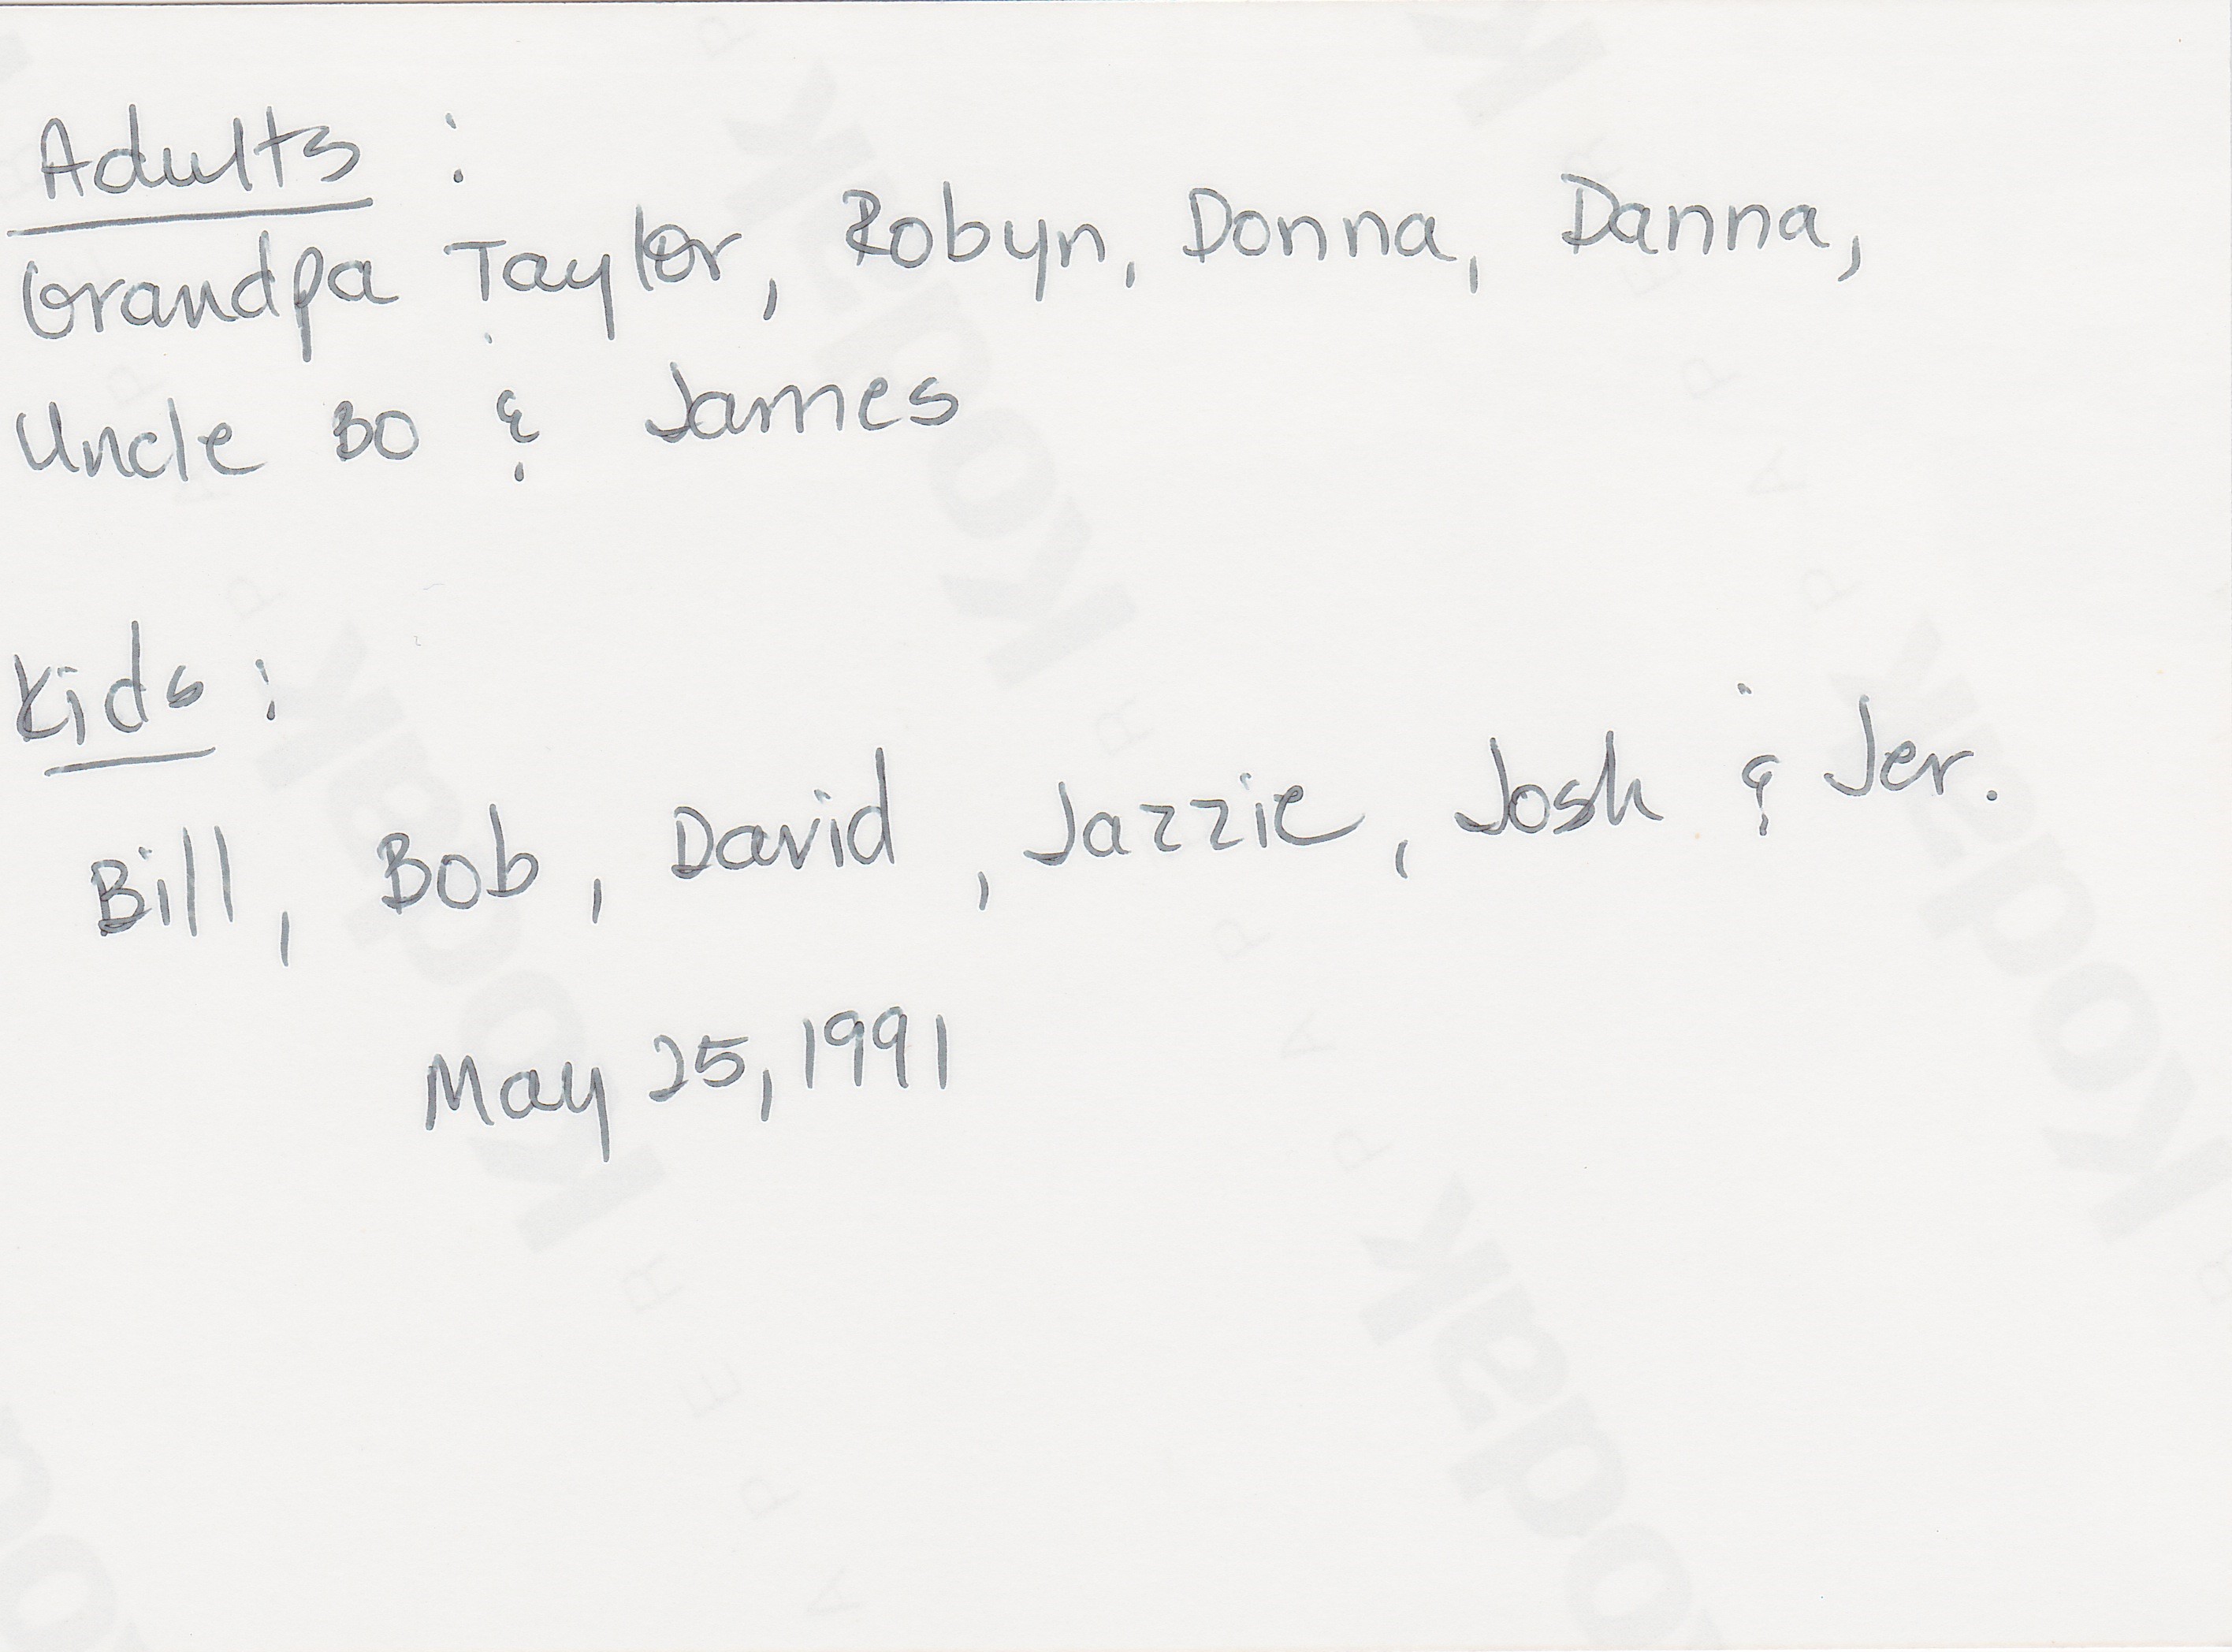 Adults :
Grandpa Taylor, Robyn, Donna, Danna,
Uncle BO & James
Kids :
Bill, Bob, David, Jazzie, Josh & Jer.
May 25, 1991
Kodak
PAPER
Kodak
PAPER
Kodak
PAPER
Kodak